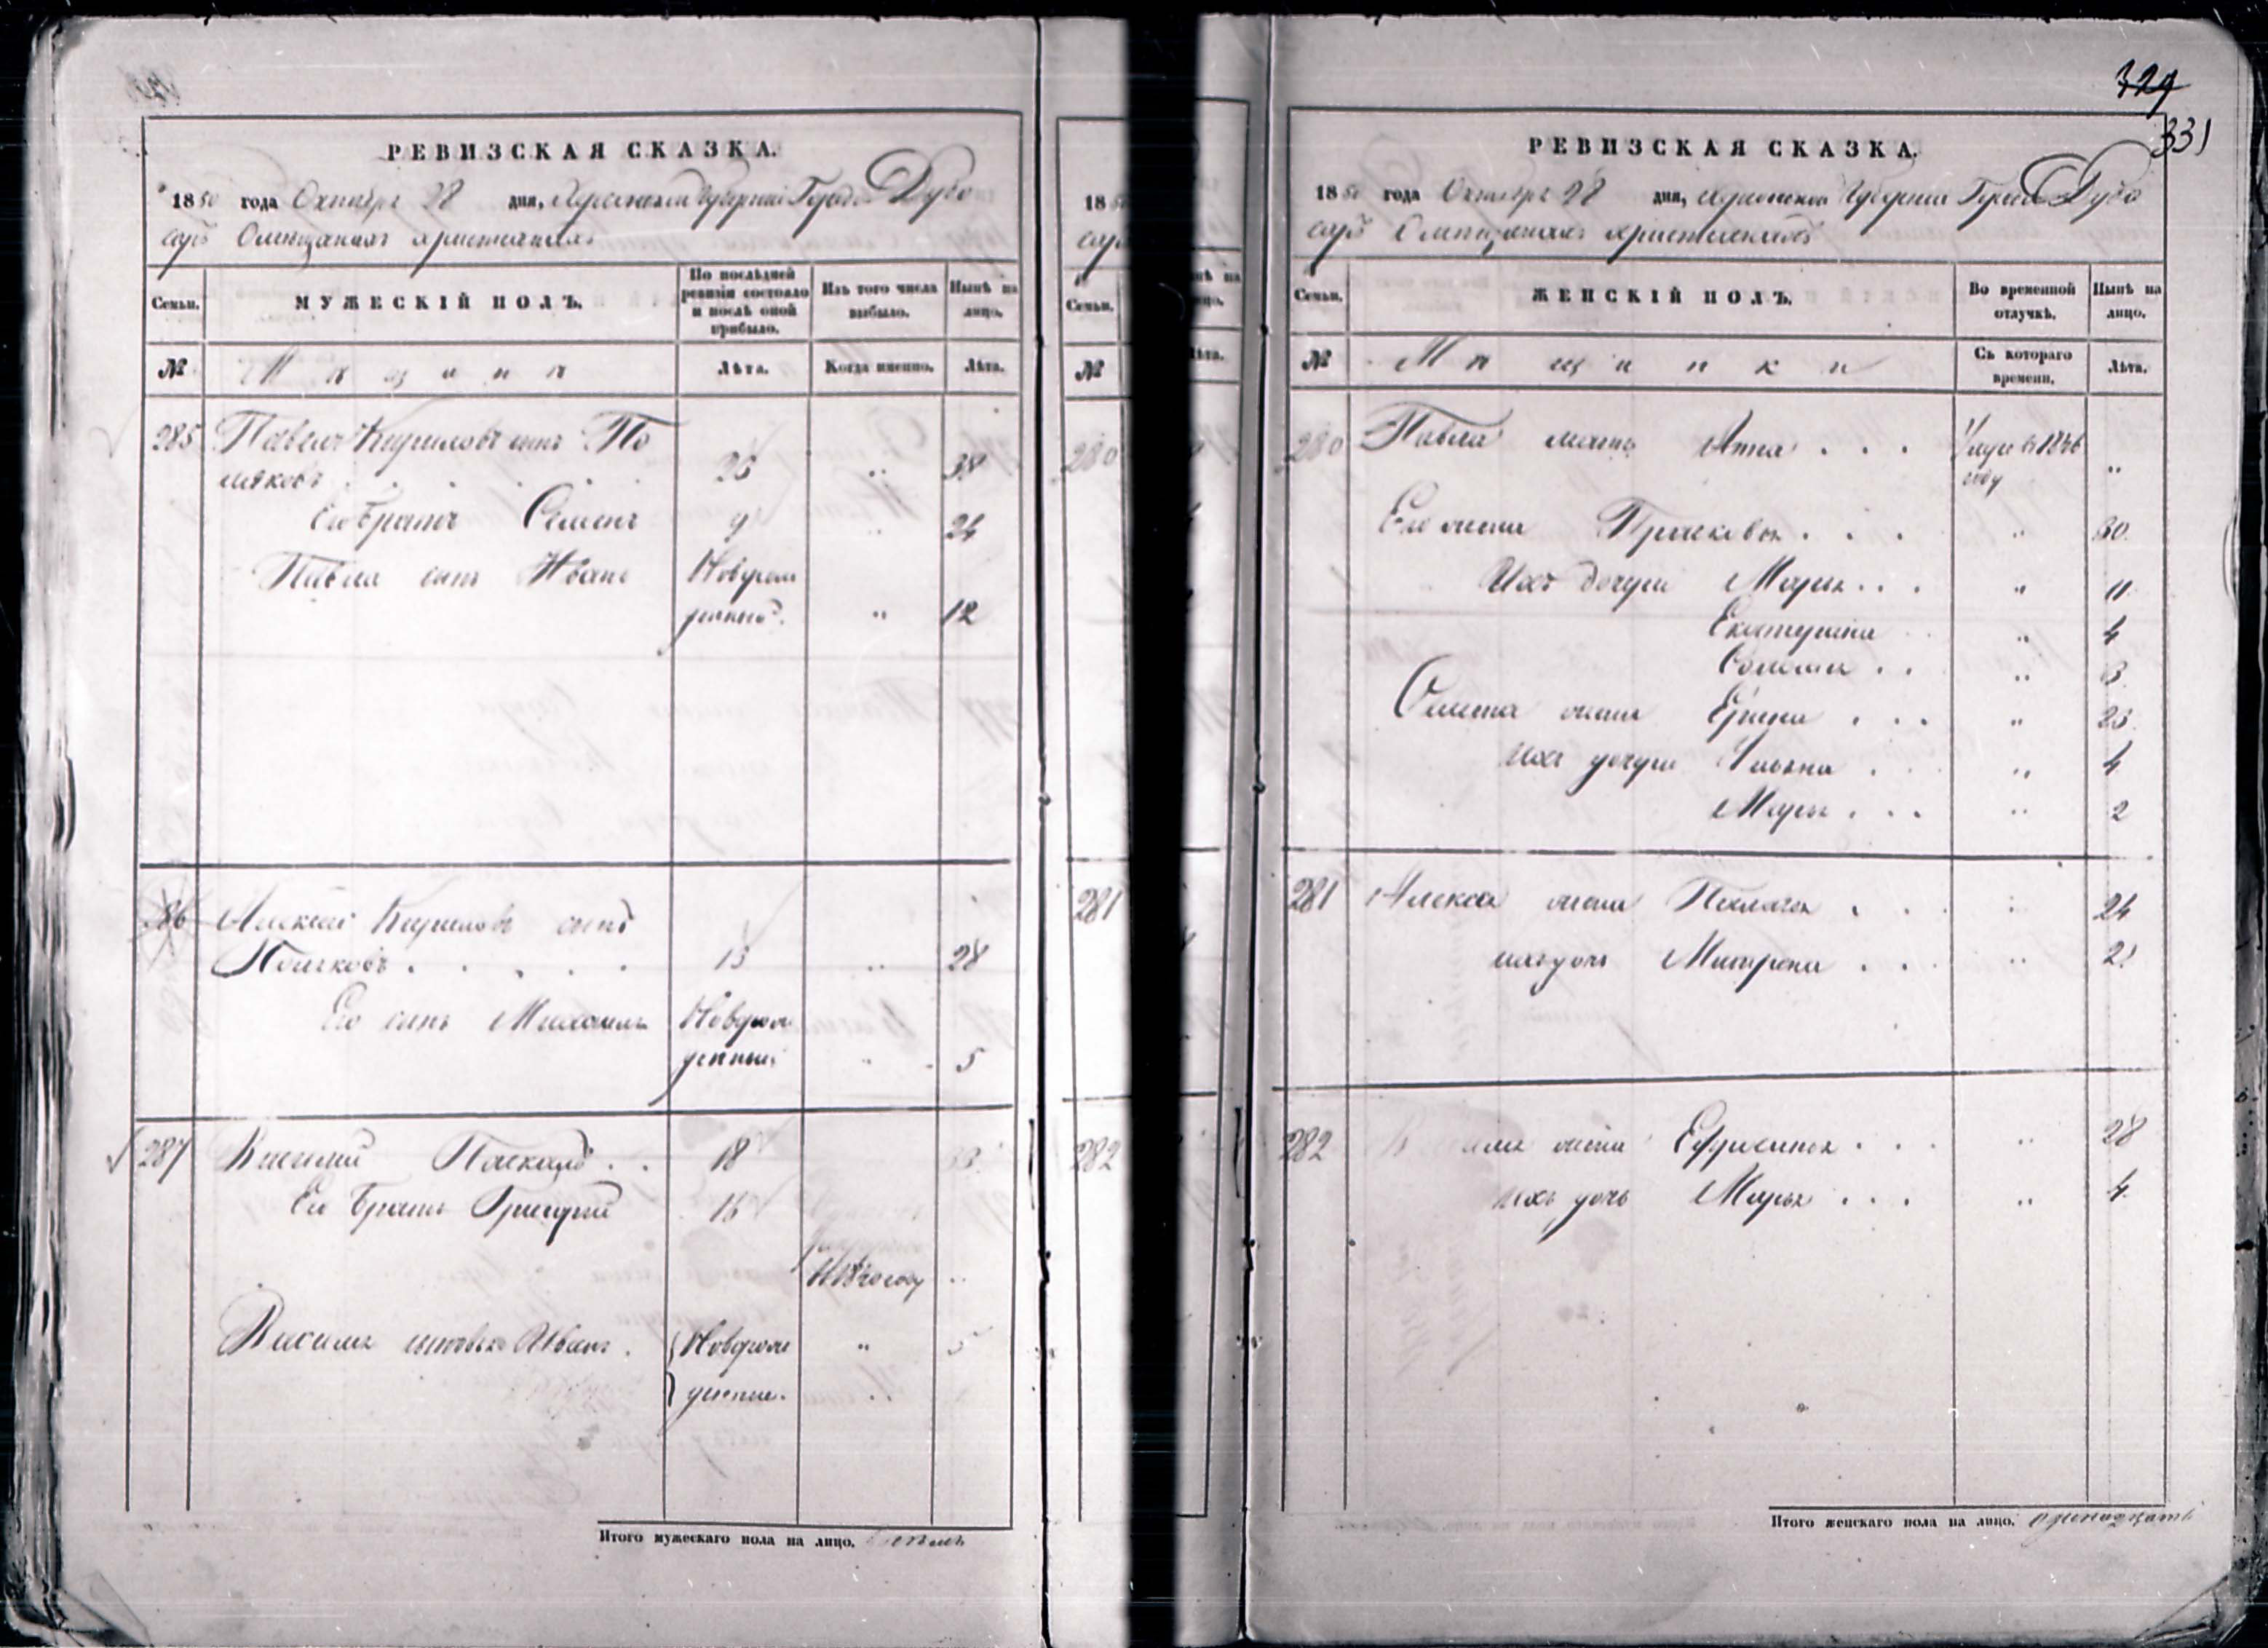 РЕВИЗСКАЯ СКАЗКА.
1850 года Октября 28 дня, Херсонской Губернии Города Дубо
саръ О мещанахъ христіанахъ
Семьи.
МУЖЕСКІЙ ПОЛЪ.
По послѣдней ревизіи состояло и послѣ оной прибыло.
Изъ того числа выбыло.
Нынѣ на лицо.
№
Мѣщани
Лѣта.
Когда именно.
Лѣта.
285 Павелъ Кириловъ сынъ По
ляковъ . . . . . 23 „ 38
Его Братъ Семенъ 9 „ 24
Павла сынъ Иванъ Новорож
денный. „ 12
286 Алексей Кириловъ сынъ
Поляковъ . . . . . 13 „ 28
Его сынъ Михаилъ Новорож
денный „ 5
287 Василий . . 18 33
Его Братъ Григорий
1840 году „
Василия сыновья Иванъ . Новорож „ 5
денные. „
Итого мужескаго пола на лицо.
18
сар
Семьи.
№
280
281
282
329
331
РЕВИЗСКАЯ СКАЗКА.
1850 года Октября 28 дня, Херсонской Губерніи Города Дубо
саръ О мещанахъ христіанахъ
Семьи.
ЖЕНСКІЙ ПОЛЪ.
Во временной отлучкѣ.
Нынѣ на лицо.
№
Мѣщанки
Съ котораго времени.
Лѣта.
280 Павла мать Анна . . . 1846
году „
Его жена Прасковья . . . „ 30
Ихъ дочери Марья . . . „ 11
Екатерина . . „ 4
Соломия . . „ 3
Семена жена Ерина . . . „ 23
Ихъ дочери Ульяна . . „ 4
Марья . . . „ 2
281 Алексея жена Пелагея . . . „ 24
ихъ дочь Митрона . . . „ 2
282 Василия жена Ефросинья . . . „ 28
ихъ дочь Марья . . . „ 4
Итого женскаго пола на лицо. одинадцать